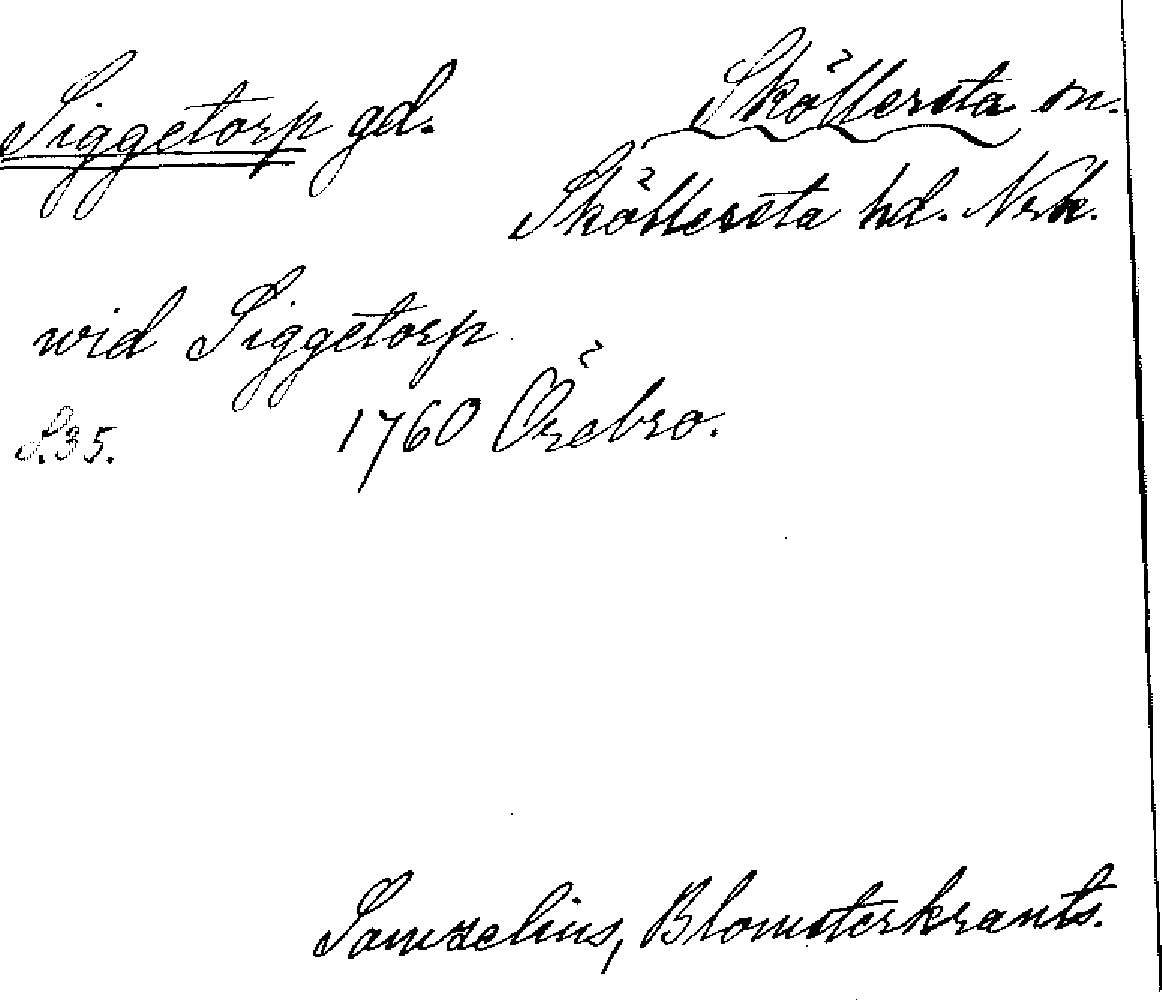 Siggetorp gd. Sköllersta sn.
Sköllersta hd. Nrk.
wid Siggetorp
S. 35. 1760 Örebro.
Samzelius, Blomsterkrants.